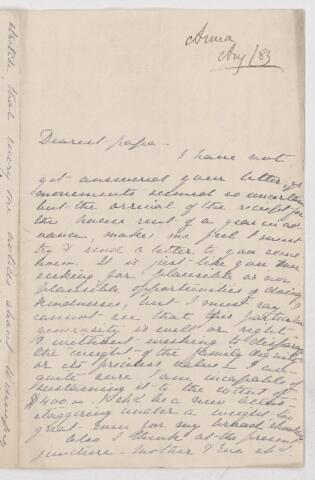 Anna
Aug/83
Dearest papa -
I have not
yet answered your letter, yr
movements seemed so uncertain
but the arrival of the receipt for
the house rent of a year in ad
vance, makes me feel I must
try & send a letter to you some
how. It is just like you ever
seeking for plausible or non
plausible opportunities of doing
kindnesses, but I must say I
cannot see that this particular
generosity is well or right.
without wishing to disparage
the weight of the family dignity
or its priceless value - I am
quite sure I am incapable of
sustaining it to the extent of
$400.00. I shd be a new Atlas
staggering under a weight too
great even for my broad shoulders
Also I think at the present
juncture - Mother & Eva &
which that every one notices about